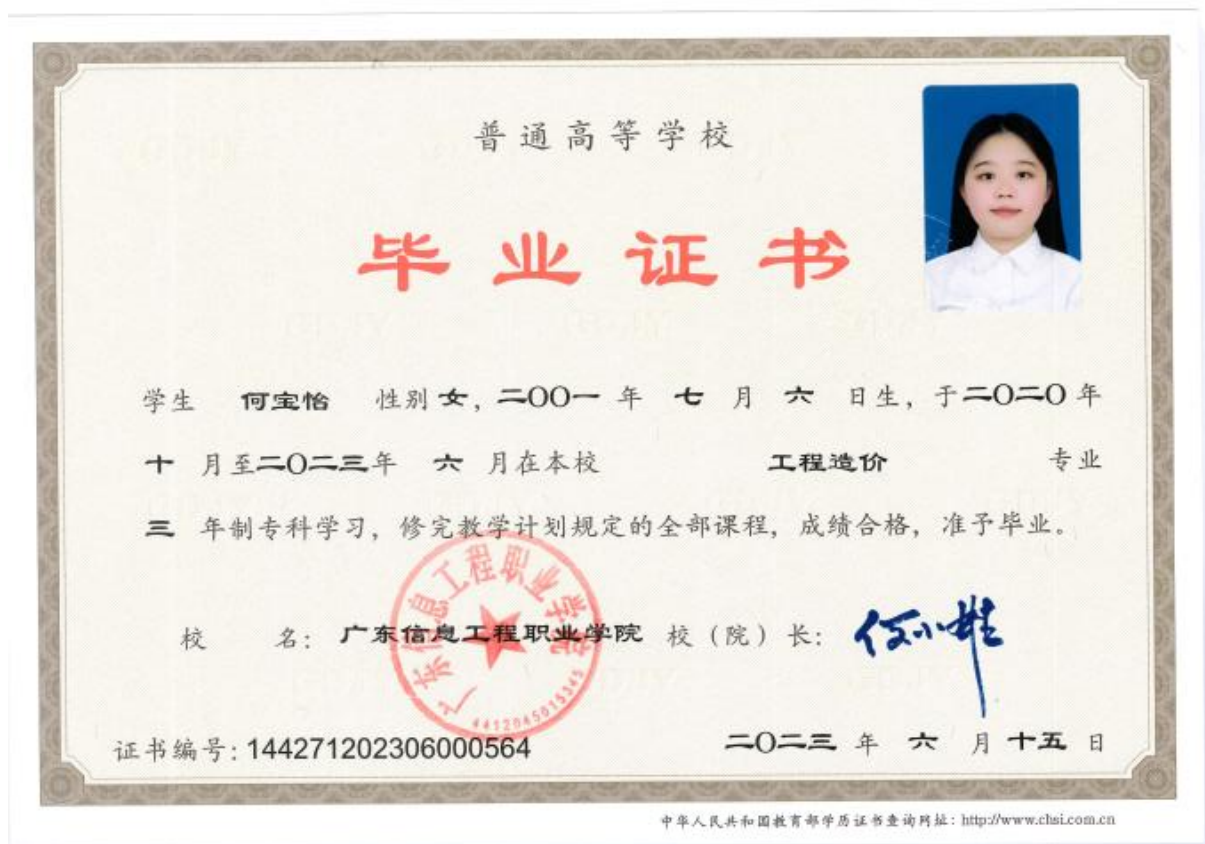 普通高等学校
毕业证书
学生 何宝怡 性别 女，二〇〇一 年 七 月 六 日生，于二〇二〇年
十 月至二〇二三年 六 月在本校 工程造价 专业
三 年制专科学习，修完教学计划规定的全部课程，成绩合格，准予毕业。
广东信息工程职业学院
4412045015345
校 名：广东信息工程职业学院 校（院）长：
证书编号：144271202306000564 二〇二三 年 六 月 十五 日
中华人民共和国教育部学历证书查询网址：http://www.chsi.com.cn